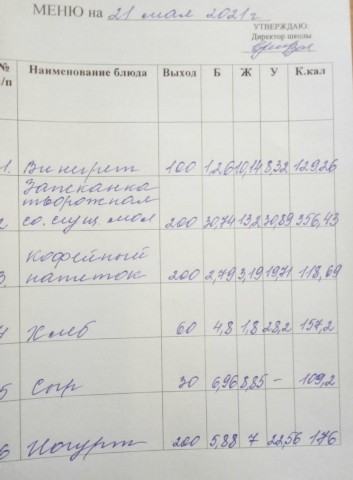 МЕНЮ на 21 мая 2021г
УТВЕРЖДАЮ:
Директор школы
№ п/п Наименование блюда Выход Б Ж У К.кал
1. Винегрет 100 1,26 10,14 8,32 129,26
Запеканка
творожная
2 со. сгущ. мол 200 30,74 13,2 30,89 356,43
Кофейный
3 напиток 200 2,79 3,19 19,71 118,69
4 Хлеб 60 4,8 1,8 28,2 157,2
5 Сыр 30 6,96 8,85 - 109,2
6 Йогурт 200 5,88 7 22,56 176